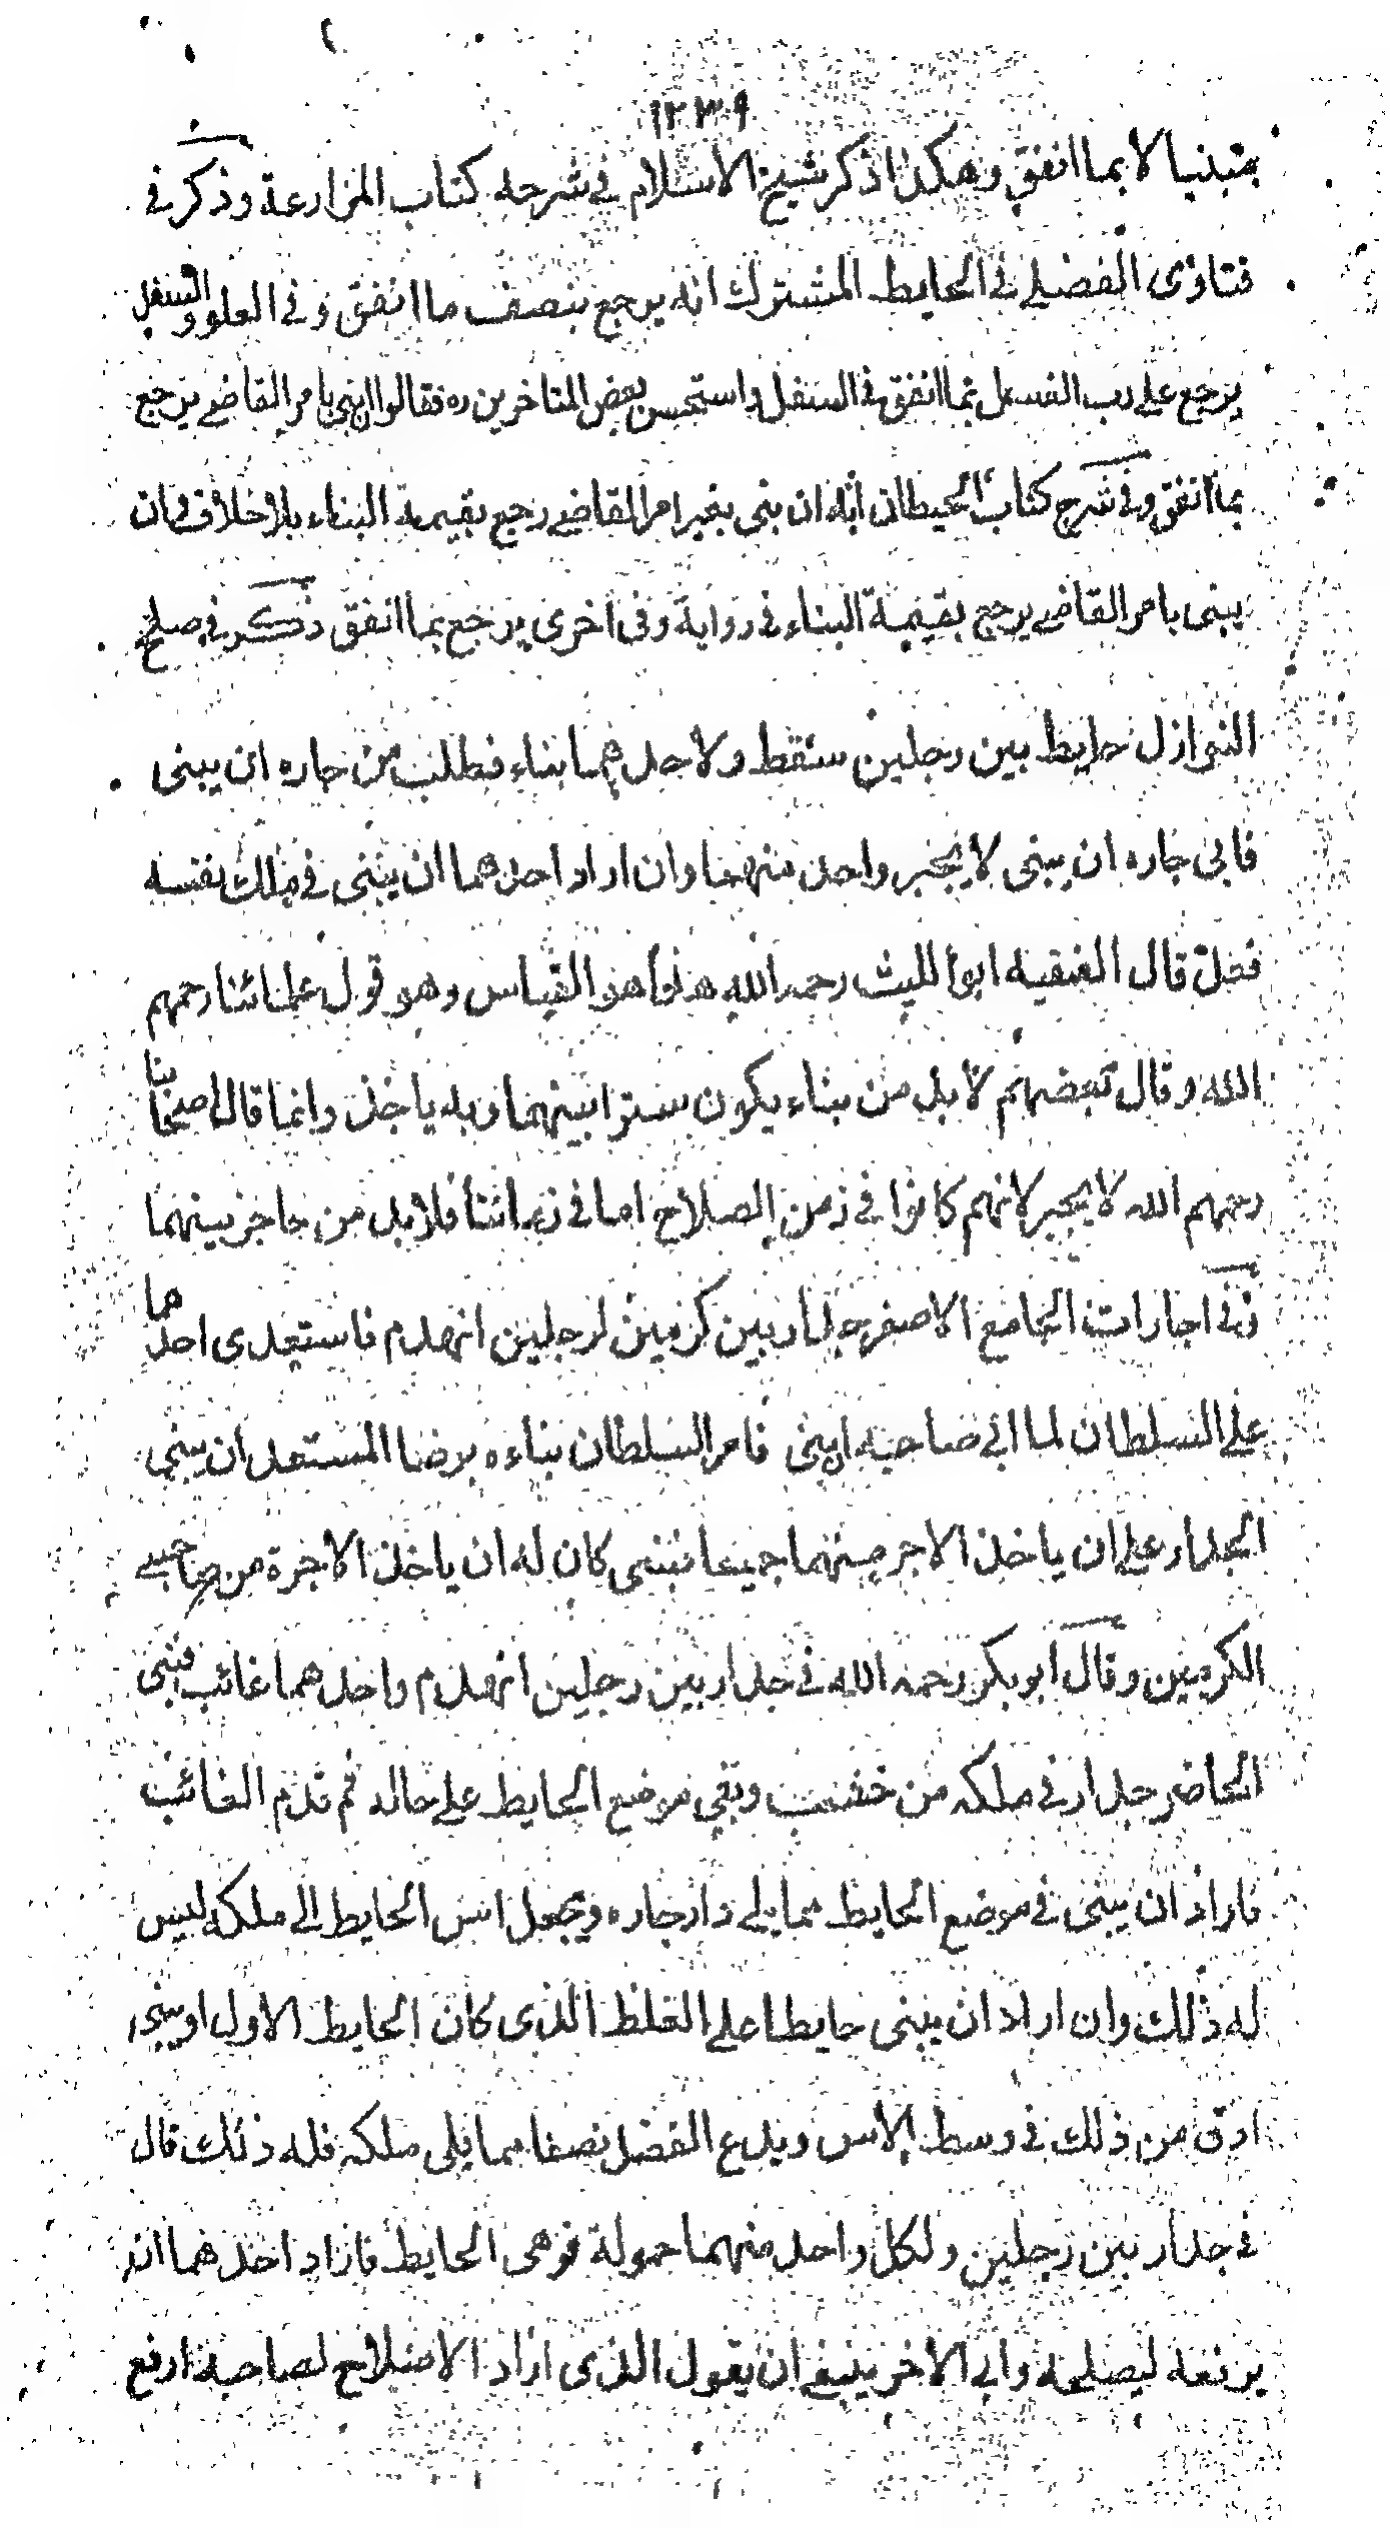 ١٢٣٩
مبنيا لا بما انفق وهكذا ذكر شيخ الاسلام في شرحه كتاب المزارعة وذكر في
فتاوى الفضلي في الحايط المشترك انه يرجع بنصف ما انفق وفي العلو والسفل
يرجع على رب السفل بما انفق في السفل واستحسن بعض المتاخرين ره فقالوا ان بنى بامر القاضي يرجع
بما انفق وفي شرح كتاب الحيطان انه ان بنى بغير امر القاضي رجع بقيمة البناء بلا خلاف في ان
يبنى بامر القاضي يرجع بقيمة البناء في رواية وفي اخرى يرجع بما انفق ذكر في صلح
النوازل حايط بين رجلين سقط ولاحدهما بناء فطلب من جاره ان يبنى
فابى جاره ان يبنى لا يجبر واحد منهما وان اراد احدهما ان يبنى في ملك نفسه
فله قال الفقيه ابو الليث رحمه الله هذا هو القياس وهو قول علمائنا رحمهم
الله وقال بعضهم لا بد من بناء يكون سترا بينهما وبه ياخذ وانما قال اصحابنا
رحمهم الله لا يجبر لانهم كانوا في زمن الصلاح اما في زماننا فلا بد من حاجز بينهما
وفي اجارات الجامع الاصغر جدار بين كرمين لرجلين انهدم فاستعدى احدهما
على السلطان لما ابى صاحبه ان يبنى فامر السلطان بناءه برضا المستعد ان يبنى
الجدار على ان ياخذ الاجر منهما جميعا فبنى كان له ان ياخذ الاجرة من صاحبي
الكرمين وقال ابو بكر رحمه الله في جدار بين رجلين انهدم واحدهما غائب فبنى
الحاضر جدار في ملكه من خشب وبقي موضع الحايط على حاله ثم قدم الغائب
فاراد ان يبنى في موضع الحايط مما يلي دار جاره ويجعل اس الحايط الى ملكه ليس
له ذلك وان اراد ان يبنى حايطا على الغلظ الذى كان الحايط الاول او يبنى
ادق من ذلك في وسط الاس ويدع الفضل نصفا مما يلى ملكه فله ذلك قال
في جدار بين رجلين ولكل واحد منهما حمولة فوهى الحايط فاراد احدهما ان
يرفعه ليصلحه وابى الاخر ينبغي ان يقول الذى اراد الاصلاح لصاحبه ارفع